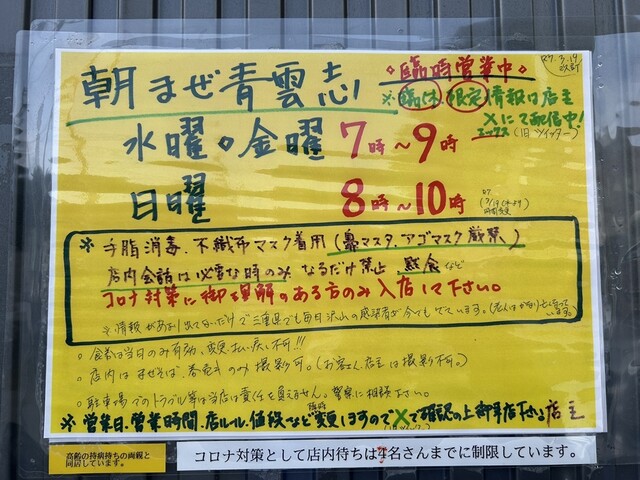 朝まぜ青雲志
◇臨時営業中◇
R7.3.14
改訂
※臨休、限定情報は店主
Xにて配信中!
エックス(旧ツイッター)
水曜。金曜 7時~9時
日曜 8時~10時
※手脂消毒、不織布マスク着用(鼻マスク、アゴマスク厳禁)
店内会話は必要な時のみ なるだけ禁止 黙食など
コロナ対策に御理解のある方のみ入店して下さい。
※情報があまり出てないだけで三重県でも毎日沢山の感染者が今でもでています。
○食券は当日のみ有効、変更、払い戻し不可!!!
○店内はまぜそば、券売キのみ撮影可。(お客さん、店主は撮影不可。)
○駐車場でのトラブル等は当店は責任を負えません。警察に相談下さい。
※営業日、営業時間、店ルール、値段など臨時変更しますのでXで確認の上御来店下さい 店主
高齢の持病持ちの両親と
同居しています。
コロナ対策として店内待ちは4名さんまでに制限しています。